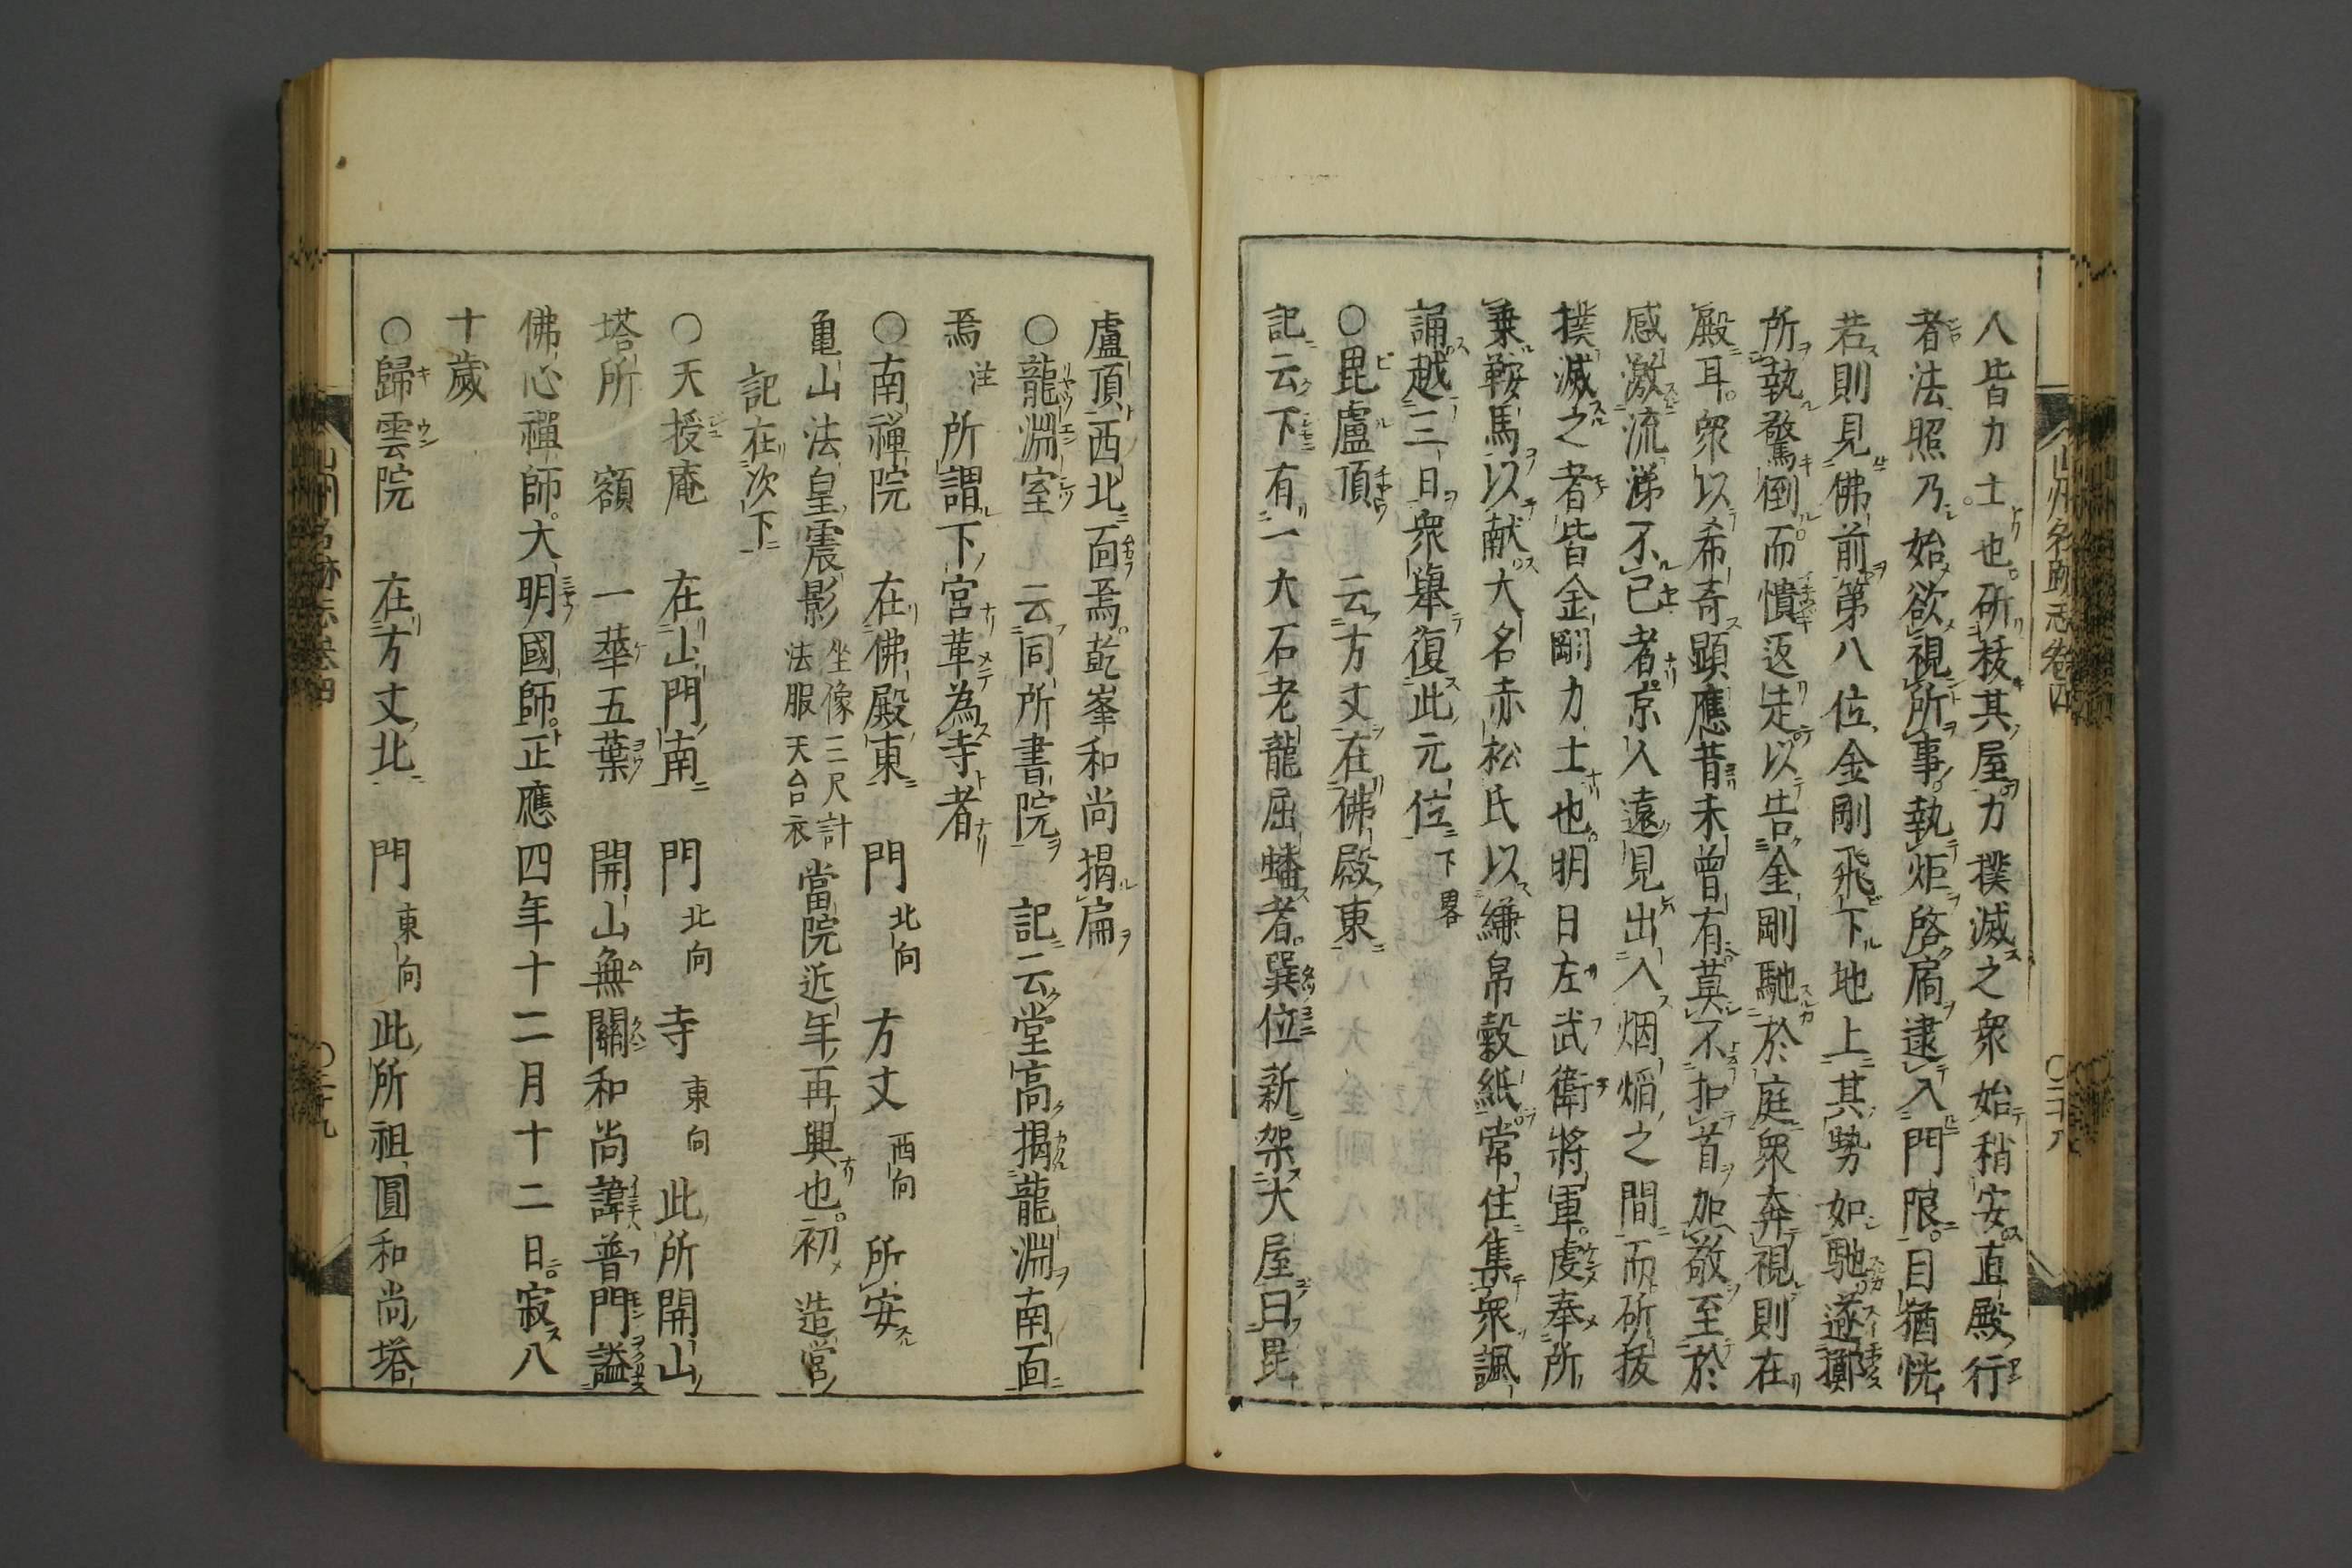 人皆力士也斫拔其屋力撲滅之衆始稍安直殿行
者法照乃始欲視所事執炬啓扃逮入門限目猶恍
若則見佛前第八位金剛飛下地上其勢如馳遂擲
所執驚倒而憤返走以告金剛馳於庭衆奔視則在
殿耳衆以希奇顯應昔未曾有莫不扣首加敬至於
感激流涕不已者京人遠見出入烟熖之間而斫拔
撲滅之者皆金剛力士也明日左武衛將軍虔奉所
乗鞍馬以献大名赤松氏以縑帛穀紙常住集衆諷
誦越三日衆舉復此元位 下畧
○毘盧頂 云方丈在佛殿東
記云下有一大石老龍屈蟠者巽位新架大屋曰毘
山州名跡志卷四 ○三十八
盧頂西北面焉乾峯和尚揭扁
○龍淵室 云同所書院 記云堂高揭龍淵南面
焉 注 所謂下宮革為寺者
○南禪院 在佛殿東 門北向 方丈西向 所安
亀山法皇震影 坐像三尺計 法服天台衣 當院近年再興也初造營
記在次下
○天授庵 在山門南 門北向 寺東向 此所開山
塔所 額 一華五葉 開山無關和尚諱普門謚
佛心禪師大明國師正應四年十二月十二日寂八
十歲
○歸雲院 在方丈北 門東向 此所祖圓和尚塔
山州名跡志卷四 ○三十九